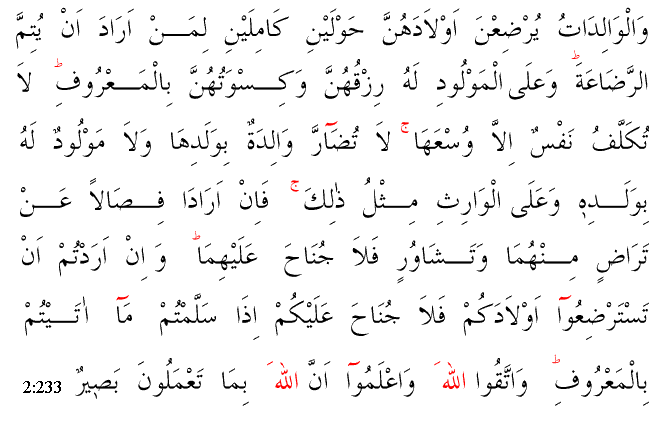 وَالْوَالِدَاتُ يُرْضِعْنَ اَوْلَادَهُنَّ حَوْلَيْنِ كَامِلَيْنِ لِمَنْ اَرَادَ اَنْ يُتِمَّ
الرَّضَاعَةَ ؕ وَعَلَى الْمَوْلُودِ لَهُ رِزْقُهُنَّ وَكِسْوَتُهُنَّ بِالْمَعْرُوفِ ؕ لَا
تُكَلَّفُ نَفْسٌ اِلَّا وُسْعَهَا ۚ لَا تُضَٓارَّ وَالِدَةٌ بِوَلَدِهَا وَلَا مَوْلُودٌ لَهُ
بِوَلَدِهٖ وَعَلَى الْوَارِثِ مِثْلُ ذٰلِكَ ۚ فَاِنْ اَرَادَا فِصَالًا عَنْ
تَرَاضٍ مِنْهُمَا وَتَشَاوُرٍ فَلَا جُنَاحَ عَلَيْهِمَا ؕ وَاِنْ اَرَدْتُمْ اَنْ
تَسْتَرْضِعُٓوا اَوْلَادَكُمْ فَلَا جُنَاحَ عَلَيْكُمْ اِذَا سَلَّمْتُمْ مَٓا اٰتَيْتُمْ
بِالْمَعْرُوفِ ؕ وَاتَّقُوا اللّٰهَ وَاعْلَمُٓوا اَنَّ اللّٰهَ بِمَا تَعْمَلُونَ بَصٖيرٌ 2:233